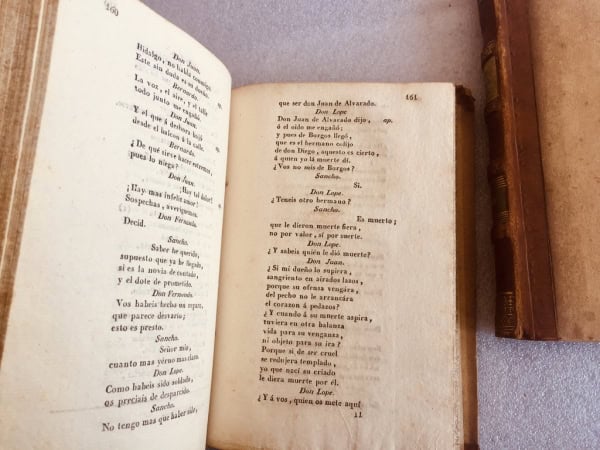 160
Don Juan.
Hidalgo, no habla conmigo.
Este sin duda es su dueño.
Bernarda.
La voz, el aire, y el talle
todo junto me engañó. ap.
Don Juan.
Y el que á deshora bajó ap.
desde el balcon á la calle.
Bernardo.
¿De qué sirve hacer estremos,
pues lo niega?
Don Juan.
¡Hay tal dolor!
¿Hay mas infelice amor?
Sospechas, averiguemos.
Don Fernando.
Decid.
Sancho.
Saber he querido,
supuesto que ya he llegado,
si es la novia de contado,
y el dote de prometido.
Don Fernando.
Vos habeis hecho un reparo,
que parece desvario;
esto es presto.
Sancho.
Señor mio,
cuanto mas yerno mas claro.
Don Lope.
Como habeis sido soldado,
os preciais de desparcido.
Sancho.
No tengo mas que haber sido,
161
que ser don Juan de Alvarado.
Don Lope
Don Juan de Alvarado dijo, ap.
ó el oido me engañó;
y pues de Burgos llegó,
que es el hermano colijo
de don Diego, aquesto es cierto,
á quien yo lá muerte dí.
¿Vos no sois de Burgos?
Sancho.
Sí.
Don Lope.
¿Teneis otro hermano?
Sancho.
Es muerto;
que le dieron muerte fiera,
no por valor, sí por suerte.
Don Lope.
¿Y sabeis quién le dió muerte?
Don Juan.
¿Si mi dueño lo supiera,
sangriento en airados lazos,
porque su ofensa vengára,
del pecho no le arrancára
el corazon á pedazos?
¿Y cuando á su muerte aspira,
tuviera en otra balanza
vida para su venganza,
ni objeto para su ira?
Porque si de ser cruel
se redujera templado,
yo que nací su criado
le diera muerte por él.
Don Lope.
¿Y á vos, quien os mete aquí
11